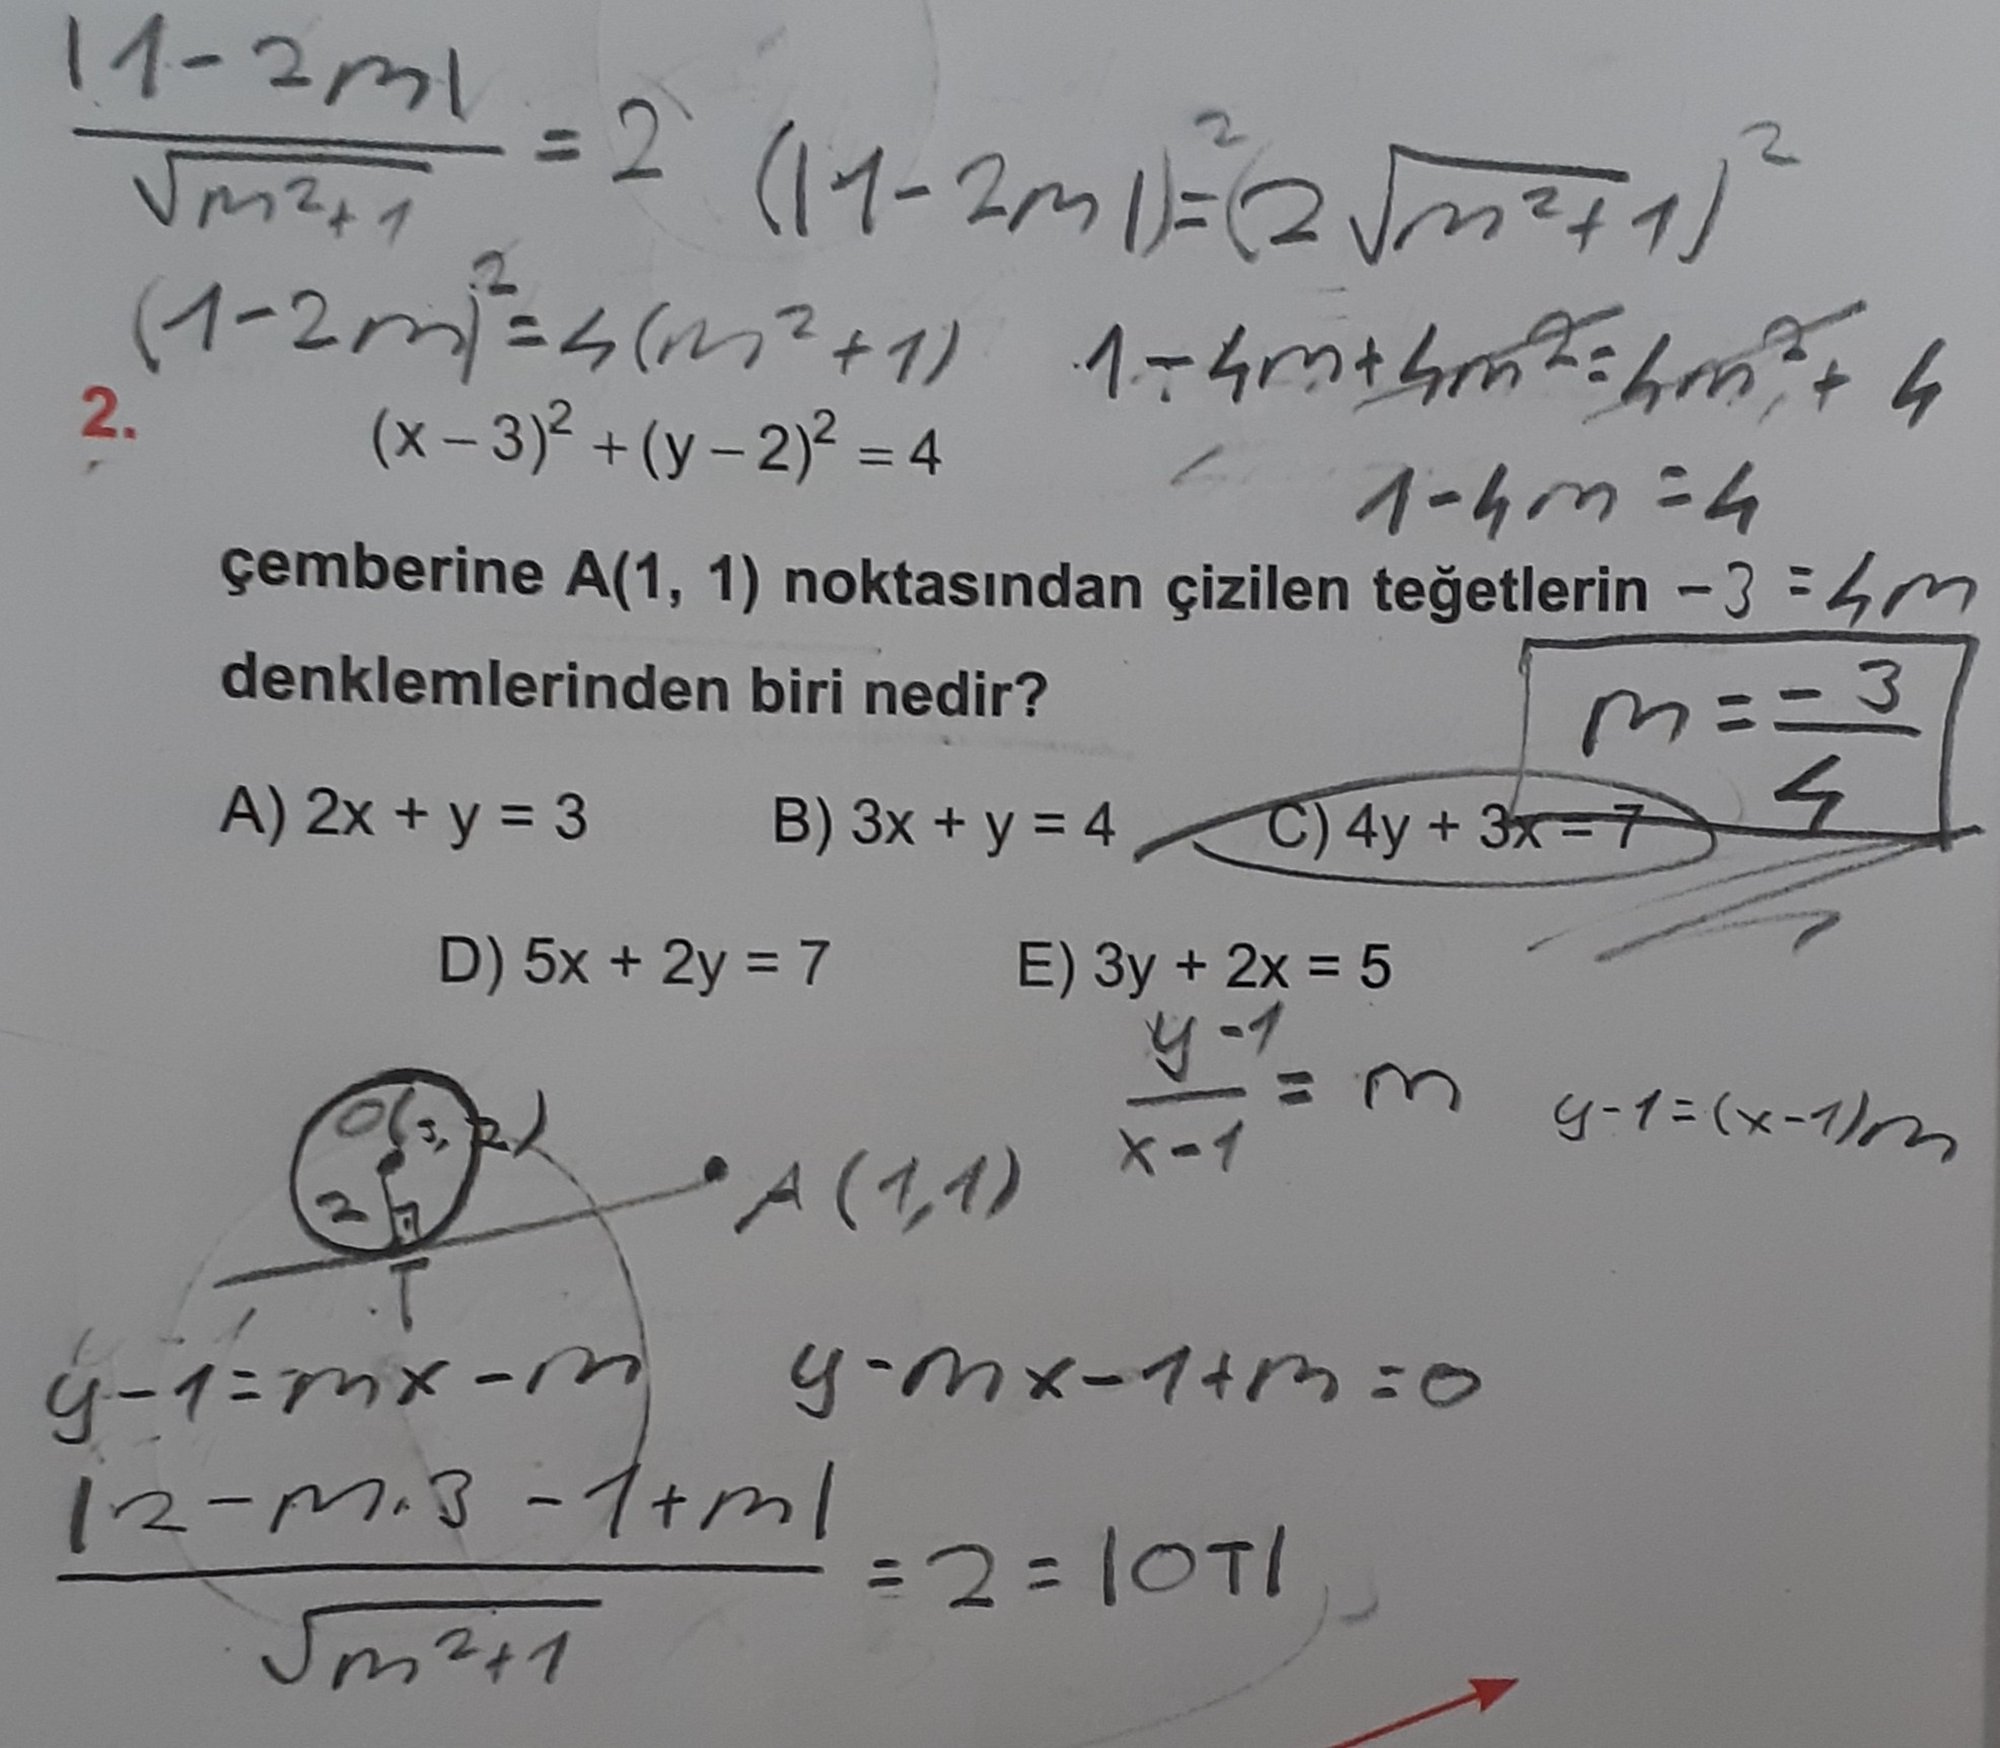 |1-2m| / √m²+1 = 2 (|1-2m|)²=(2√m²+1)²
(1-2m)²=4(m²+1) 1-4m+4m²=4m²+4
2. (x – 3)² + (y – 2)² = 4
1-4m=4
çemberine A(1, 1) noktasından çizilen teğetlerin -3=4m
denklemlerinden biri nedir? m=-3/4
A) 2x + y = 3 B) 3x + y = 4 C) 4y + 3x = 7
D) 5x + 2y = 7 E) 3y + 2x = 5
y-1 / x-1 = m y-1=(x-1)m
O(3,2)
2
A(1,1)
T
y-1=mx-m y-mx-1+m=0
|2-m.3-1+m| / √m²+1 = 2 = |OT|